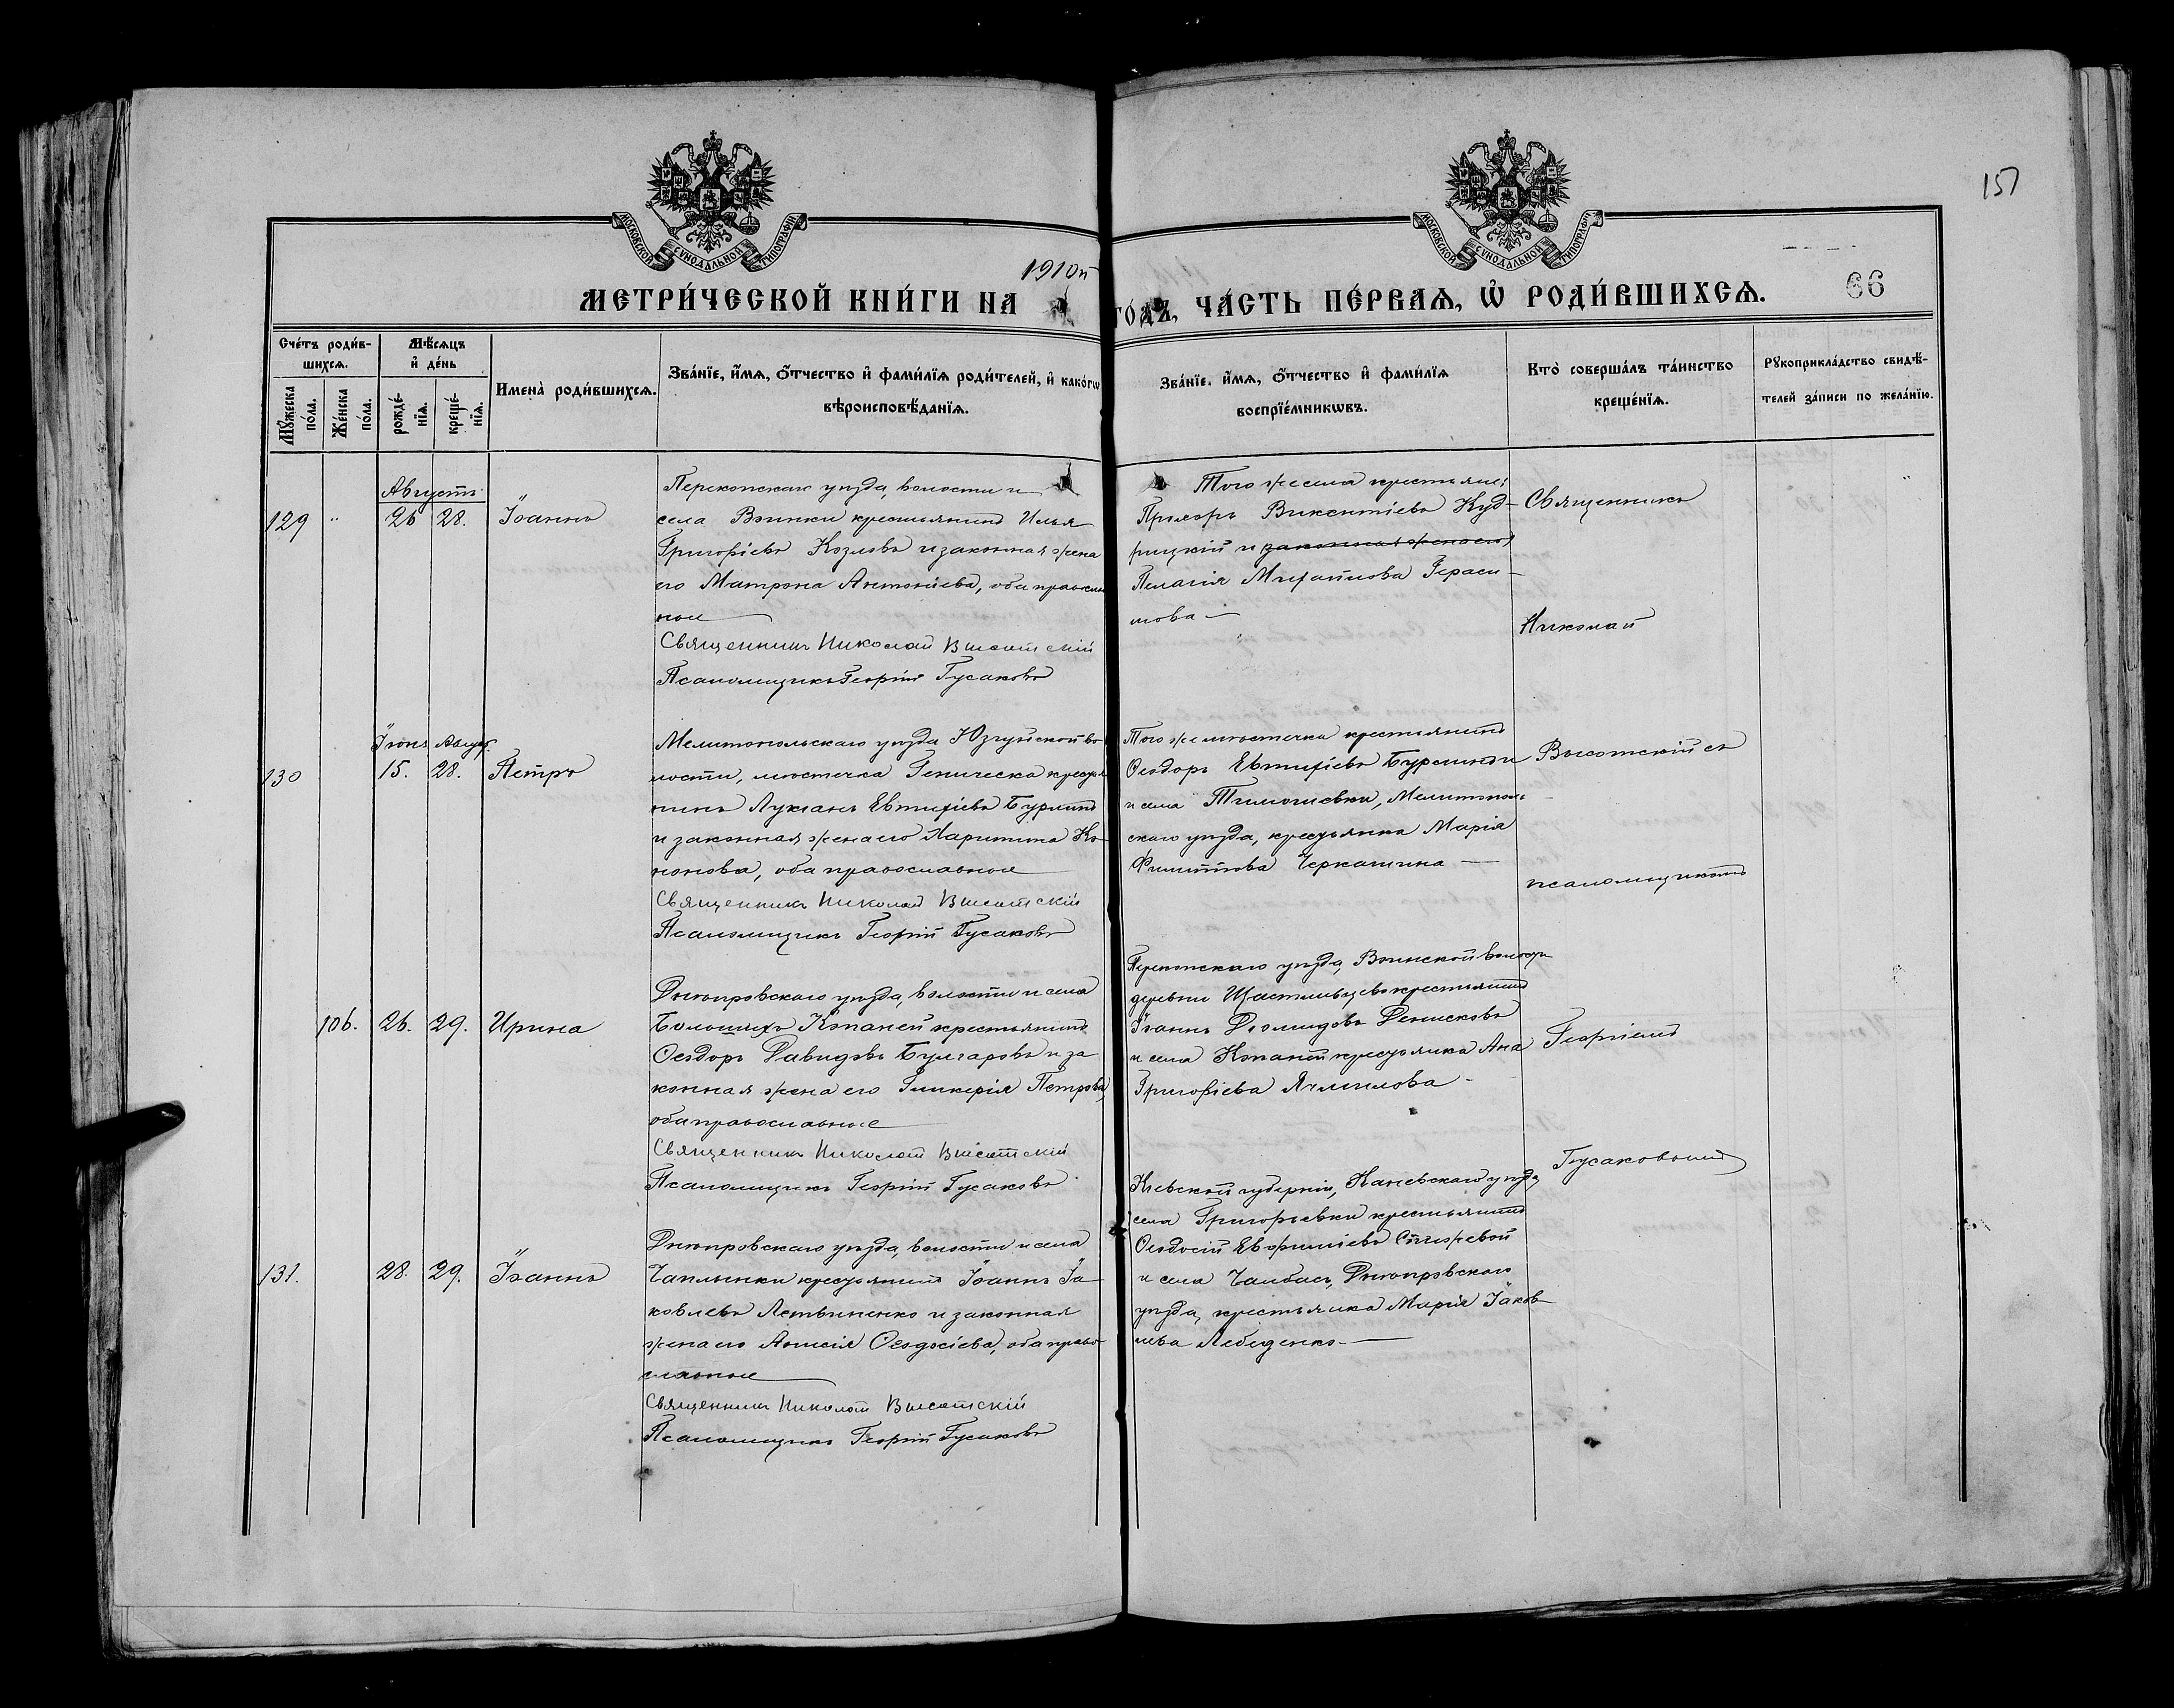 157
МОСКОВСКОЙ СѴНОДАЛЬНОЙ ТИПОГРАФІИ
МОСКОВСКОЙ СѴНОДАЛЬНОЙ ТИПОГРАФІИ
1910й
МЕТРИ́ЧЕСКОЙ КНИ́ГИ НА ГО́ДЪ, ЧА́СТЬ ПЕ́РВАѦ, Ѡ҆ РОДИ́ВШИХСѦ. 66
Сче́тъ роди́в-
шихсѧ.
Мꙋ́жеска по́ла.
Же́нска по́ла.
Мѣ́сѧцъ
и҆ де́нь
рожде́-
нїѧ.
креще́-
нїѧ.
Имена̀ роди́вшихсѧ.
Зва́нїе, и҆́мѧ, ѻ҆́тчество и҆ фами́лїѧ роди́телей, и҆ како́гѡ
вѣроисповѣ́данїѧ.
Зва́нїе, и҆́мѧ, ѻ҆́тчество и҆ фами́лїѧ
воспрїе́мникѡвъ.
Кто̀ соверша́лъ та́инство
креще́нїѧ.
Рꙋкоприкла́дство свидѣ́-
телей за́писи по жела́нїю.
Августъ
129 " 26 28. Іоаннъ
Перекопскаго уѣзда, волости и
села Воинки крестьянинъ Илья
Григоріевъ Козловъ и законная жена
его Матрона Антоніева, оба православ
ные
Священникъ Николай Высотскій
Псаломщикъ Георгій Гусаковъ
Того же села крестьяне:
Прохоръ Викентіевъ Куд-
рицкій и законная жена его
Пелагія Михайлова Гераси-
мова
Іюня Август.
130 15. 28. Петръ
Мелитопольскаго уѣзда Юзкуйской во-
лости, мѣстечка Геническа крестья
нинъ Лукіанъ Евтихіевъ Бурминъ
и законная жена его Харитина Ко-
нонова, оба православные
Священникъ Николай Высотскій
Псаломщикъ Георгій Гусаковъ
Того же мѣстечка крестьянинъ
Ѳеодоръ Евтихіевъ
и села Тимошевки, Мелитополь-
скаго уѣзда, крестьянка Марія
Филиппова Черкашина
106. 26. 29. Ирина
Днѣпровскаго уѣзда, волости и села
Большихъ Копаней крестьянинъ
Ѳеодоръ Давидовъ Булгаровъ и за
конная жена его Гликерія Петрова,
оба православные
Священникъ Николай Высотскій
Псаломщикъ Георгій Гусаковъ
Перекопскаго уѣзда, Воинской волости
деревни Щастливцево крестьянинъ
Іоаннъ Діомидовъ Денисковъ
и села Копаней крестьянка Анна
Григоріева
131. 28. 29. Іоаннъ
Днѣпровскаго уѣзда, волости и села
Чаплынки крестьянинъ Іоаннъ Іа-
ковлевъ Летвиненко и законная
жена его Анисія Ѳеодосіева, оба право-
славные
Священникъ Николай Высотскій
Псаломщикъ Георгій Гусаковъ
Кіевской губерніи, Каневскаго уѣзда,
села Григорьевки крестьянинъ
Ѳеодосій Евфиміевъ
и села Чалбасъ, Днѣпровскаго
уѣзда, крестьянка Марія Іаков-
лева Лебеденко
Священникъ
Николай
Высотскій съ
псаломщикомъ
Георгіемъ
Гусаковымъ